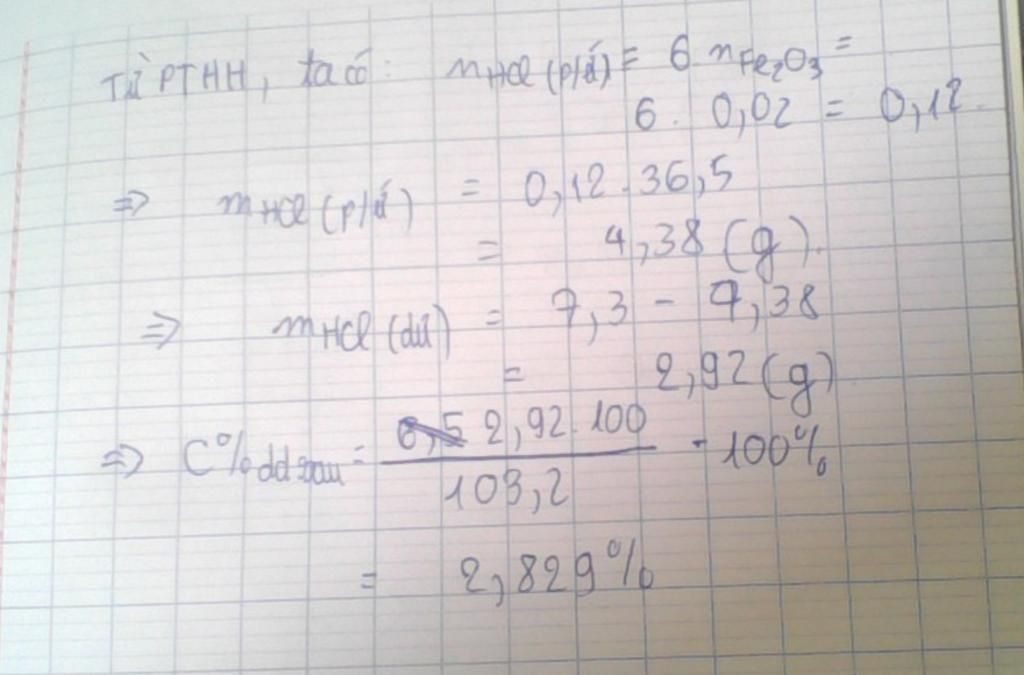 Từ PTHH, ta có: nHCl (p/ứ) = 6 nFe2O3 =
6 . 0,02 = 0,12.
=> mHCl (p/ứ) = 0,12 . 36,5
= 4,38 (g).
=> mHCl (dư) = 7,3 - 4,38
= 2,92 (g)
=> C% dd sau = 2,92 . 100 / 103,2 . 100%
= 2,829%